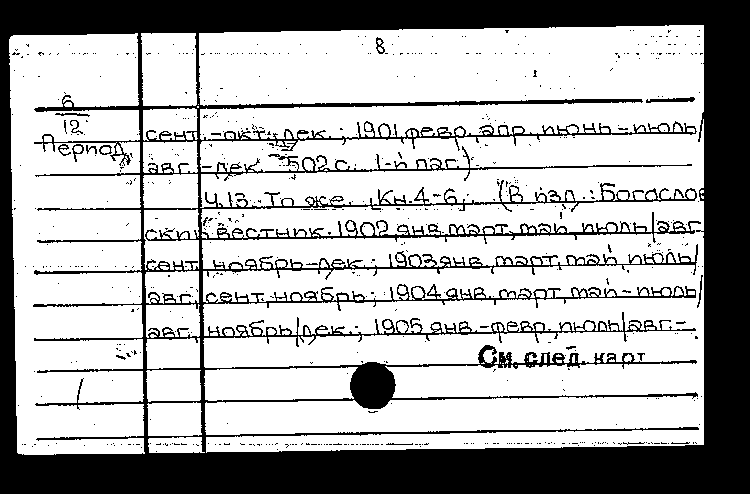 8
6
12
Период
сент.-окт., дек.; 1901, февр., апр., июнь-июль/
авг.-дек. 502 с. 1-й паг.)
Ч.13. То же. Кн.4-6. (В изд.: Богослов
ский вестник. 1902, янв., март, май, июль/авг.
сент., ноябрь-дек.; 1903, янв., март, май, июль/
авг., сент., ноябрь; 1904, янв., март, май-июль/
авг., ноябрь/дек.; 1905, янв.-февр., июль/авг.-
См. след. карт